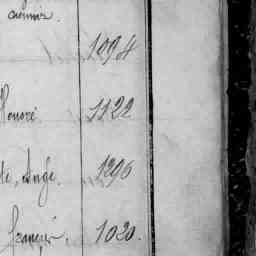 casimir.
1094
Honoré
1122
te, Ange.
1296
François.
1020.